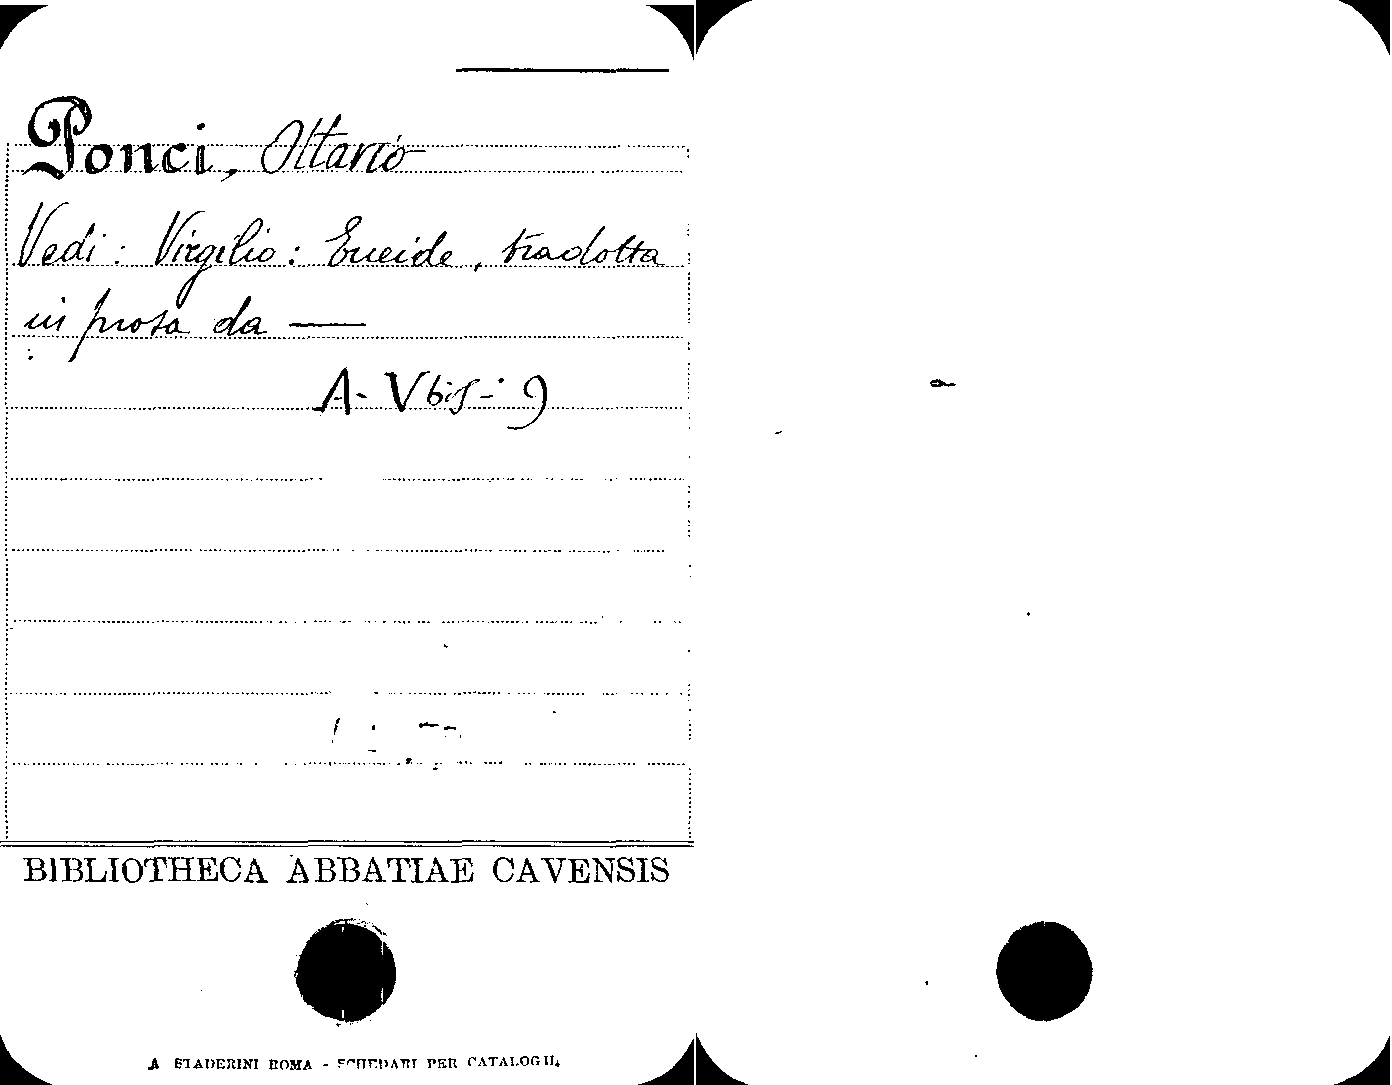 Ponci, Ottavio
Vedi: Virgilio: Eneide, tradotta
in prosa da —
A- V bis - 9
BIBLIOTHECA ABBATIAE CAVENSIS
A STADERINI ROMA - SCHEDARI PER CATALOGHI